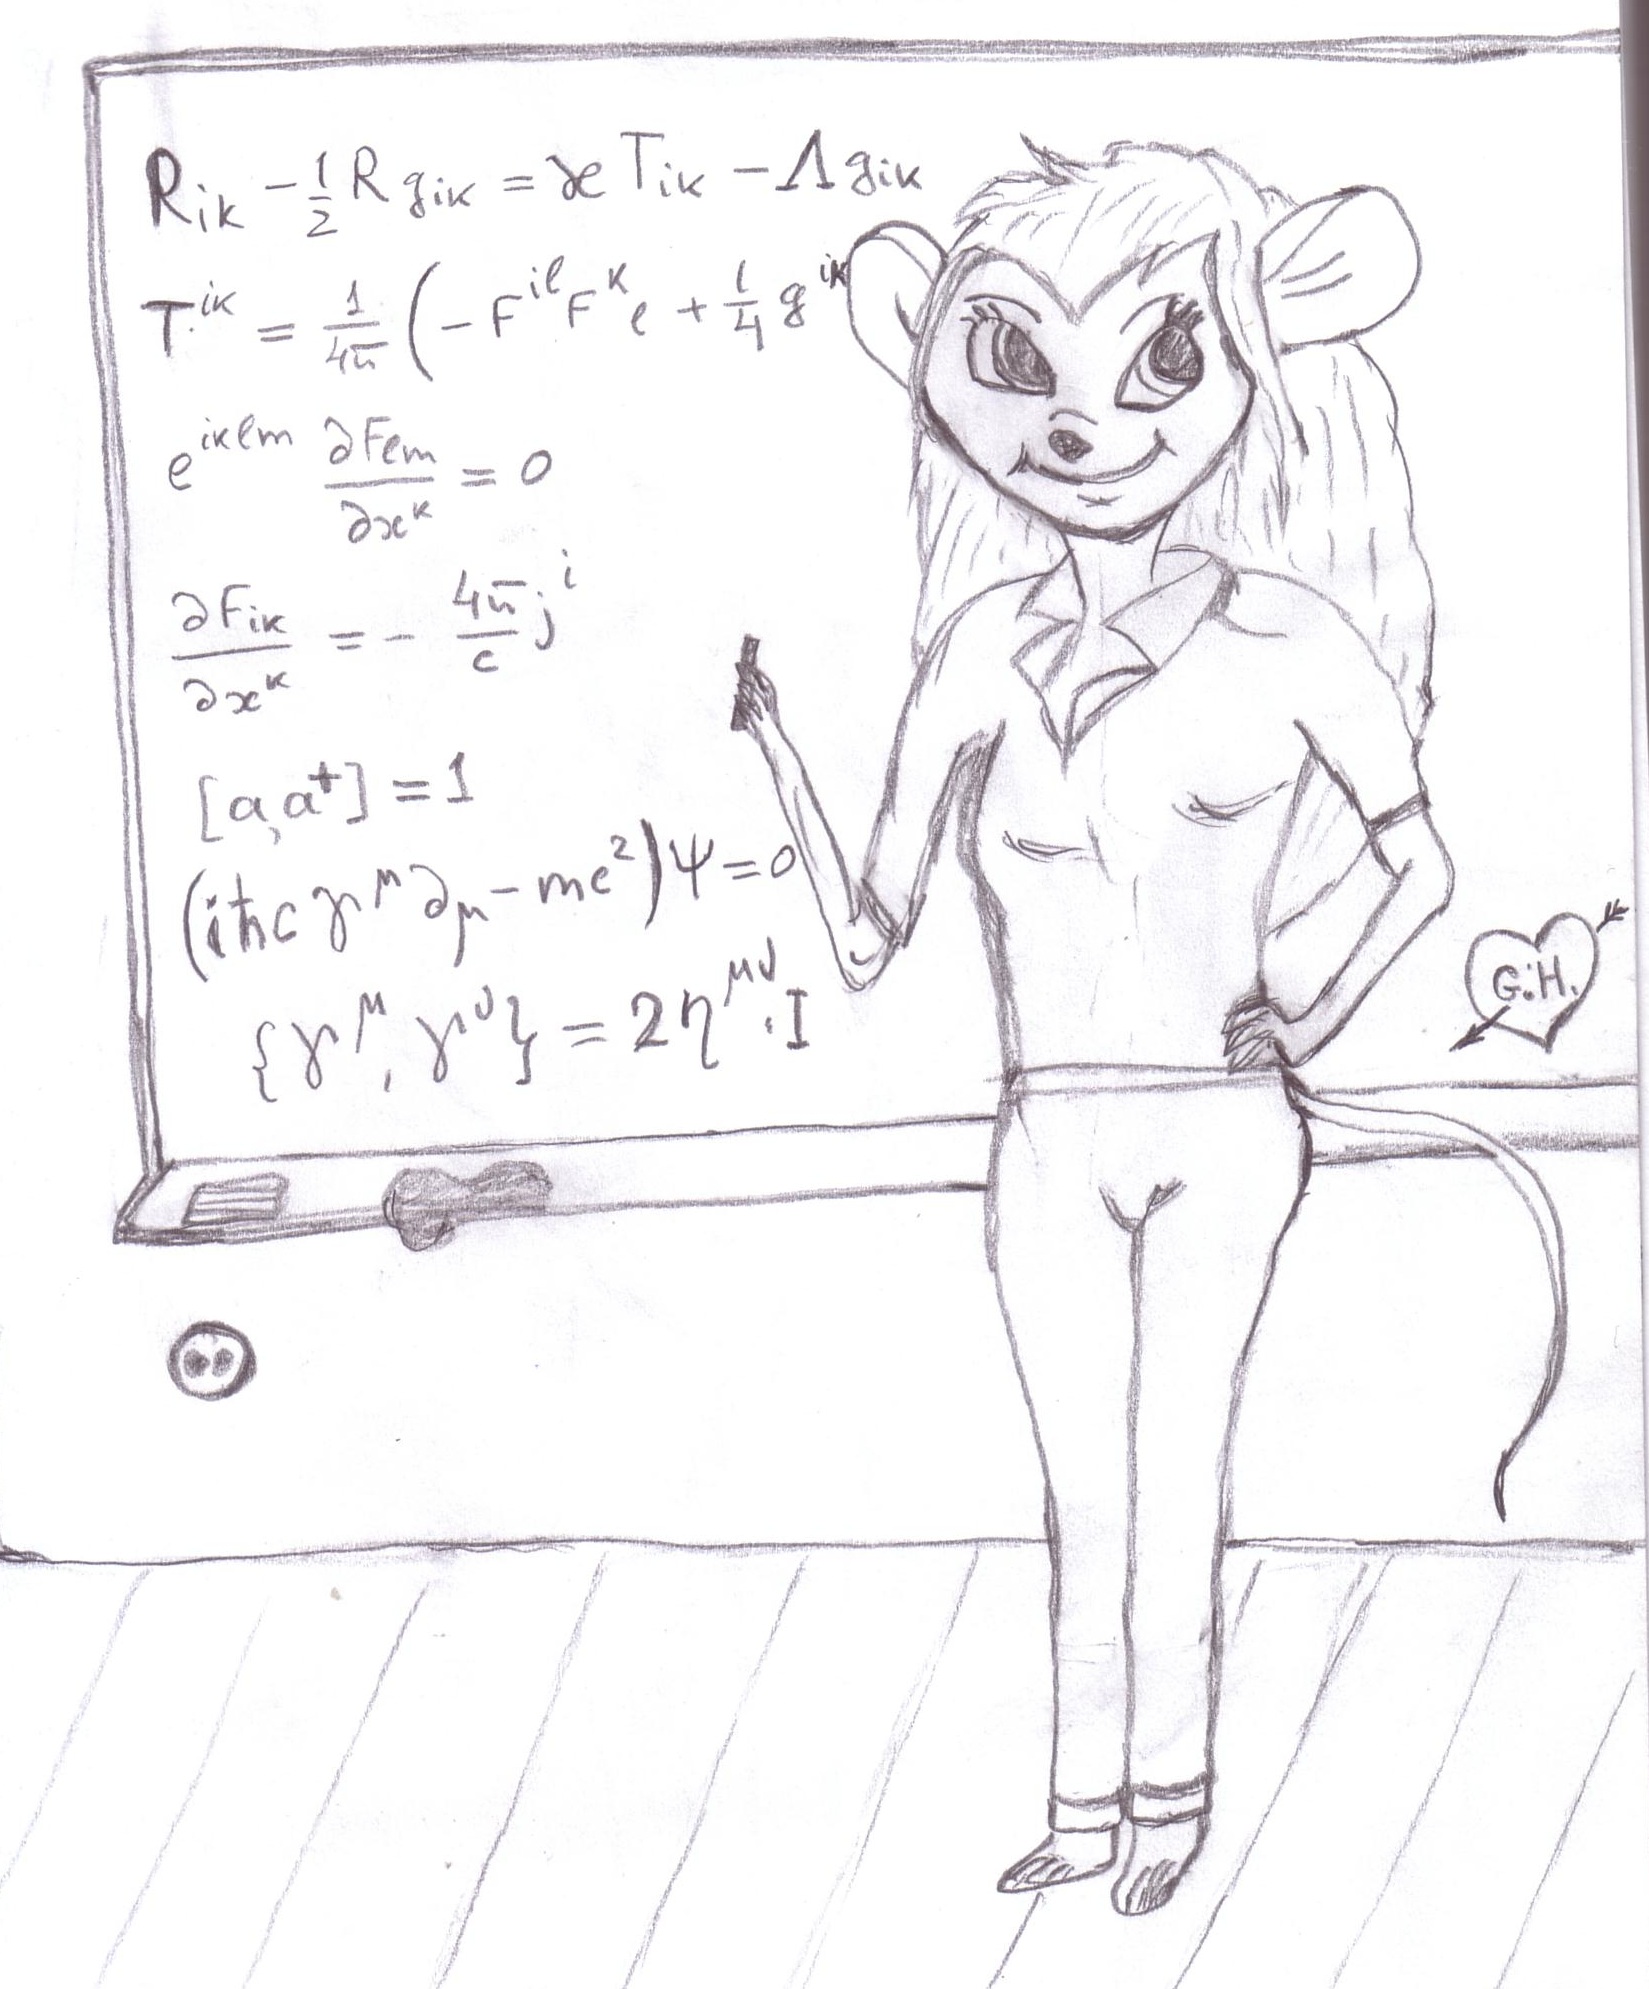 Rᵢₖ - ½ R gᵢₖ = æ Tᵢₖ - Λ gᵢₖ
T^{ik} = 1/4π (-F^{il} F^{k}_{l} + 1/4 g^{ik}
e^{iklm} ∂F_{lm}/∂x^{k} = 0
∂F_{ik}/∂x^{k} = - 4π/c j^{i}
[a, a⁺] = 1
(iħc γ^{μ} ∂_{μ} - mc²)ψ = 0
{γ^{μ}, γ^{ν}} = 2η^{μν}·I
G.H.